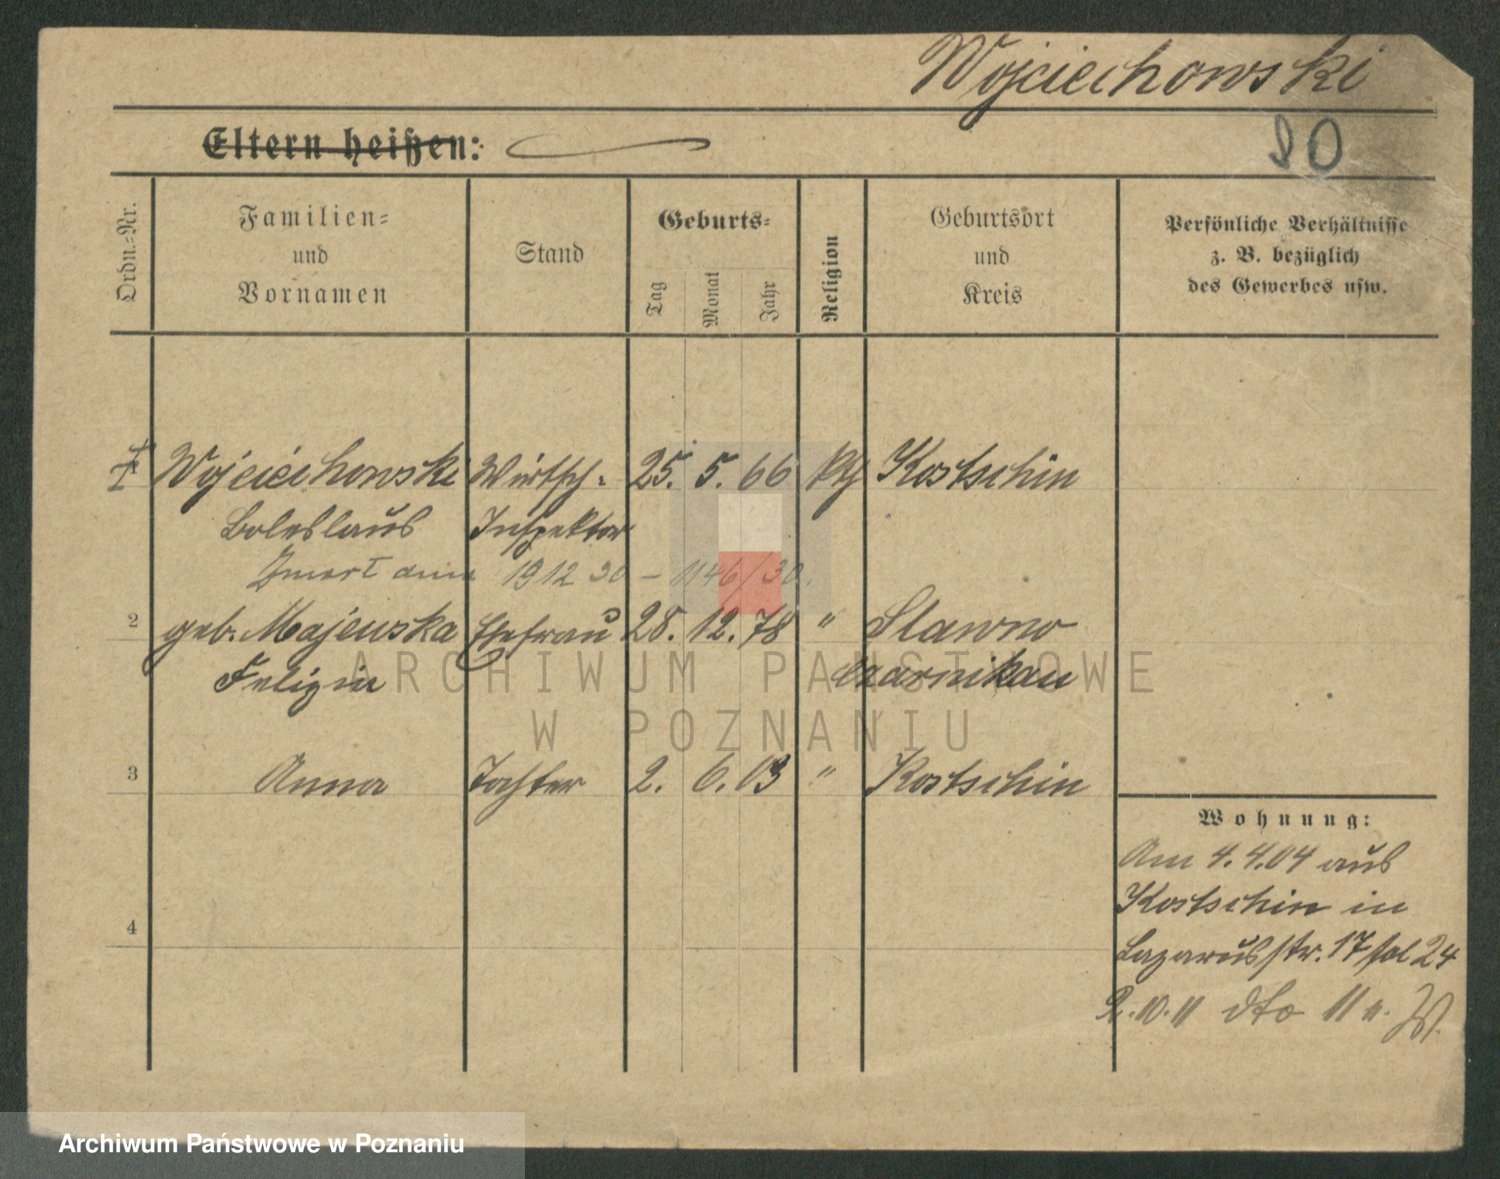 Wojciechowski
20
Eltern heißen:
Ordn.-Nr.
Familien- und Vornamen
Stand
Geburts-
Tag
Monat
Jahr
Religion
Geburtsort und Kreis
Persönliche Verhältnisse
z. B. bezüglich
des Gewerbes usw.
1 Wojciechowski Wirtsch- 25. 5. 66 kth Kostschin
Boleslaus Inspektor
Zmarł dnia 1912 30 – 1146/30.
2 geb. Majewska Ehefrau 28. 12. 78 " Slawno
Felizia Czarnikau
3 Anna Tochter 2. 6. 03 " Kostschin
4
Wohnung:
Am 4.4.04 aus
Kostschin in
Lazarusstr. 17 24
2.10.11 dto 11
ARCHIWUM PAŃSTWOWE
W POZNANIU
Archiwum Państwowe w Poznaniu